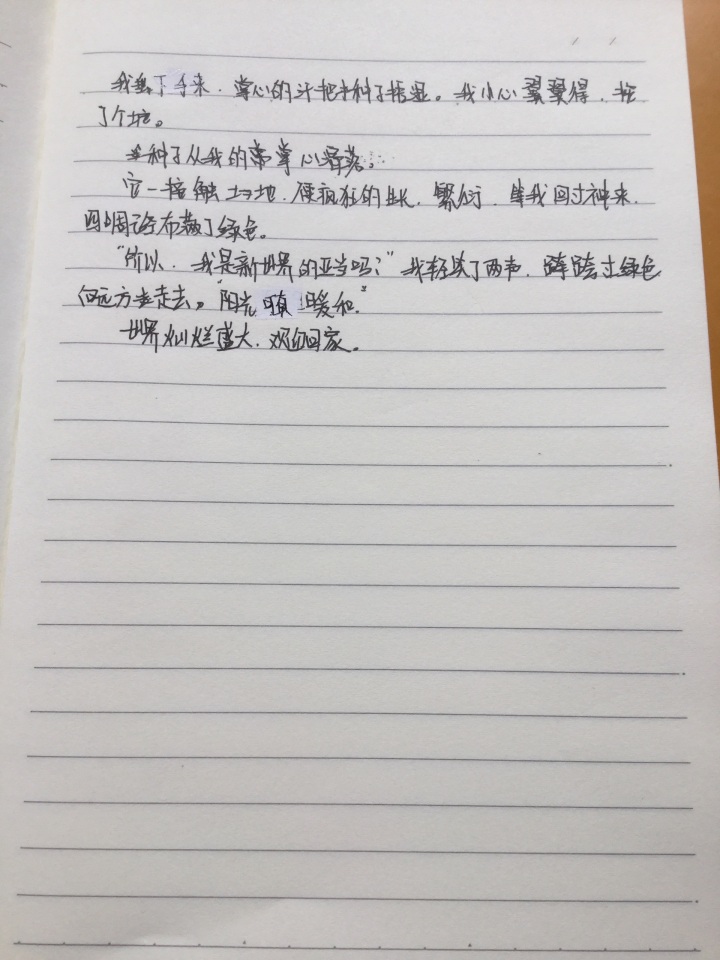 我垂下手来，掌心的汗把种子捂湿。我小心翼翼得，挖
了个坑。
种子从我的掌心滑落。
它一接触土地，便疯狂的生长，繁衍，等我回过神来，
四周已经布满了绿色。
“所以，我是新世界的亚当吗？”我轻笑了两声，跨过绿色
向远方走去。“阳光 暖和。”
世界灿烂盛大，欢迎回家。